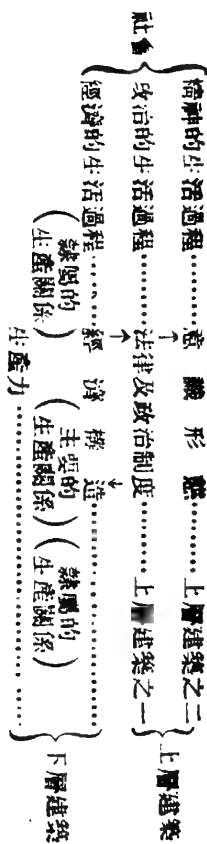 社會
精神的生活過程……意識形態……上層建築之二
↑
政治的生活過程……法律及政治制度……上層建築之一
上層建築
↑ ↓
經濟的生活過程……經濟構造……
(隸屬的生產關係)(主要的生產關係)(隸屬的生產關係)
生產力……
下層建築